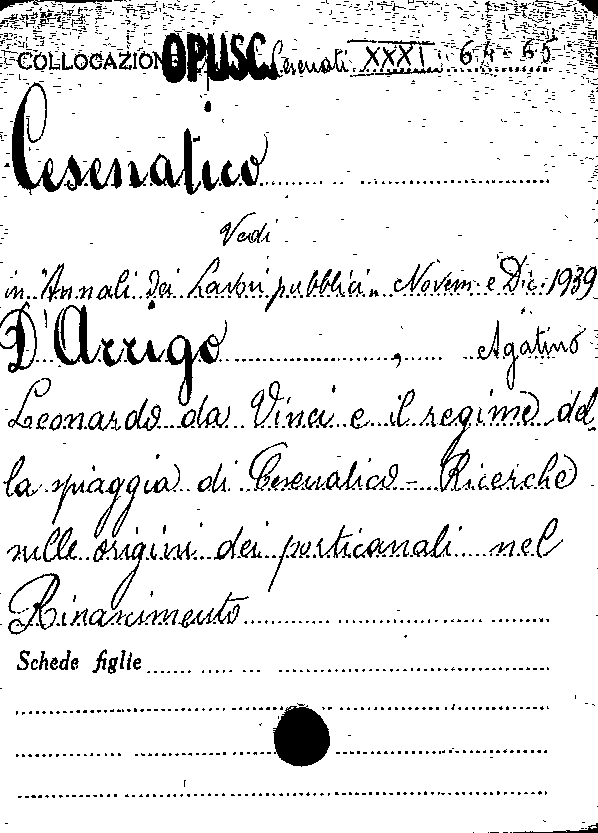 COLLOCAZIONE OPUSC. Cesenati XXXI 64-65
Cesenatico
Vedi
in "Annali dei Lavori pubblici" Novem. e Dic. 1939
D'Arrigo, Agatino
Leonardo da Vinci e il regime del-
la spiaggia di Cesenatico - Ricerche
sulle origini dei porticanali nel
Rinascimento
Schede figlie